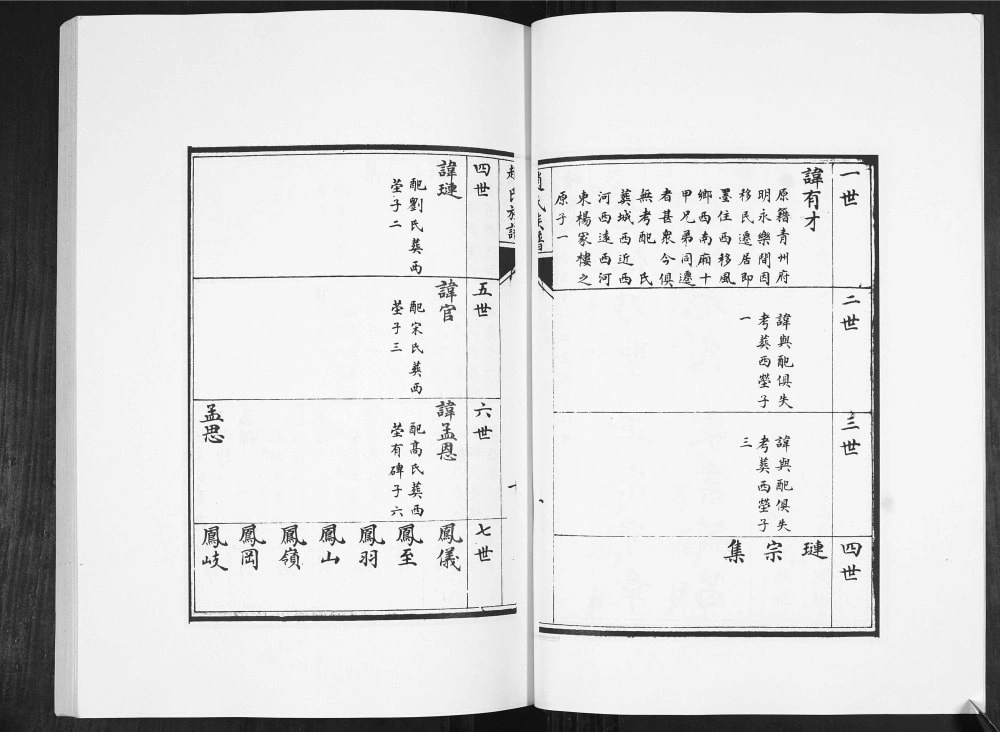 一世
諱有才
原籍青州府
明永樂間因
移民遷居即
墨住西移風
鄉西南廂十
甲兄弟同遷
者甚衆今俱
無考配 氏
葬城西近西
河西遠西河
東楊家樓之
原子一
二世
諱與配俱失
考葬西塋子
一
三世
諱與配俱失
考葬西塋子
三
四世
璉
宗
集
趙氏族譜
四世
諱璉
配劉氏葬西
塋子二
五世
諱官
配宋氏葬西
塋子三
六世
諱孟恩
配高氏葬西
塋有碑子六
孟思
七世
鳳儀
鳳至
鳳羽
鳳山
鳳嶺
鳳岡
鳳岐